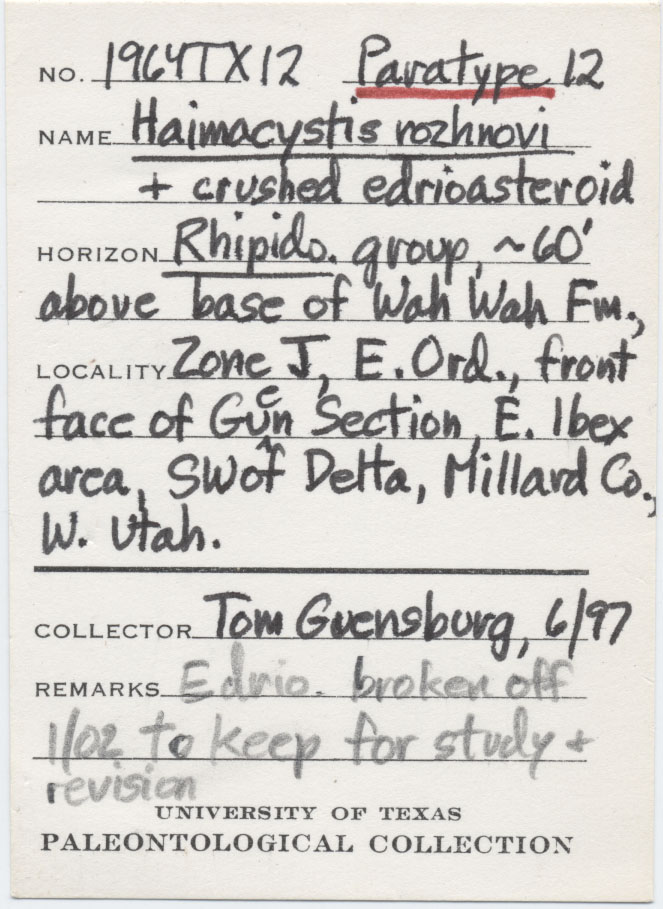 NO. 1964TX12 Paratype 12
NAME Haimacystis rozhnovi
+ crushed edrioasteroid
HORIZON Rhipido. group, ~60'
above base of Wah Wah Fm.,
LOCALITY Zone J, E. Ord., front
face of Guen Section, E. Ibex
area, SW of Delta, Millard Co.,
W. Utah.
COLLECTOR Tom Guensburg, 6/97
REMARKS Edrio. broken off
1/02 to keep for study +
revision
UNIVERSITY OF TEXAS
PALEONTOLOGICAL COLLECTION